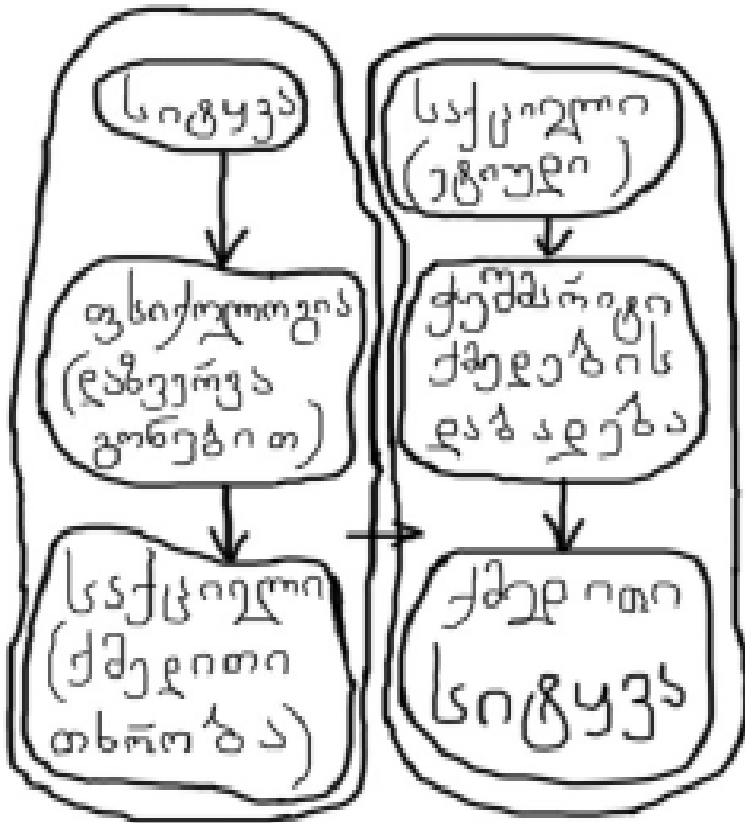 სიტყვა
ფსიქოლოგია
(დაზვერვა
გონებით)
საქციელი
(ქმედითი
თხრობა)
საქციელი
(ეტიუდი)
ჭეშმარიტი
ქმედების
დაბადება
ქმედითი
სიტყვა